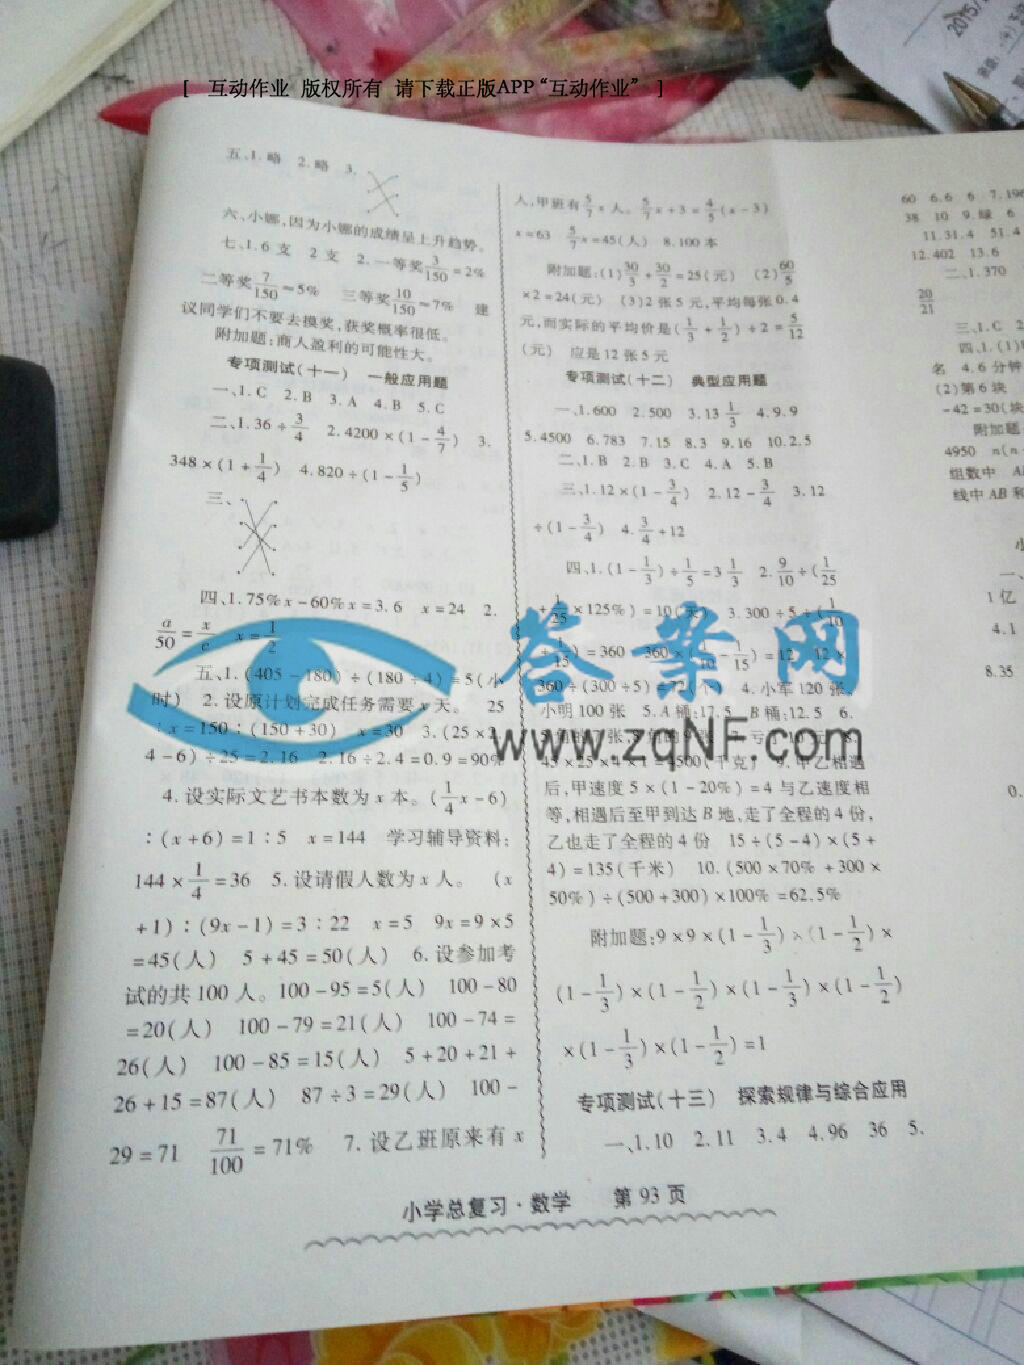 [ 互动作业 版权所有 请下载正版APP“互动作业” ]
五、1. 略 2. 略 3.
六、小娜,因为小娜的成绩呈上升趋势。
七、1. 6 支 2 支 2. 一等奖3/150≈2%
二等奖7/150≈5% 三等奖10/150≈7% 建
议同学们不要去摸奖,获奖概率很低。
附加题:商人盈利的可能性大。
专项测试(十一) 一般应用题
一、1. C 2. B 3. A 4. B 5. C
二、1. 36÷3/4 2. 4200×(1-4/7) 3.
348×(1+1/4) 4. 820÷(1-1/5)
三、
四、1. 75%x-60%x=3.6 x=24 2.
a/50=x/c x=1/2
五、1. (405-180)÷(180÷4)=5(小
时) 2. 设原计划完成任务需要x天。 25
:x=150:(150+30) x=30 3. (25×2.
4-6)÷25=2.16 2.16÷2.4=0.9=90%
4. 设实际文艺书本数为x本。(1/4x-6)
:(x+6)=1:5 x=144 学习辅导资料:
144×1/4=36 5. 设请假人数为x人。 (x
+1):(9x-1)=3:22 x=5 9x=9×5
=45(人) 5+45=50(人) 6. 设参加考
试的共100人。100-95=5(人) 100-80
=20(人) 100-79=21(人) 100-74=
26(人) 100-85=15(人) 5+20+21+
26+15=87(人) 87÷3=29(人) 100-
29=71 71/100=71% 7. 设乙班原来有x
人,甲班有5/7x人。5/7x+3=4/5(x-3)
x=63 5/7x=45(人) 8. 100本
附加题:(1)30/3+30/2=25(元) (2)60/5
×2=24(元) (3)2张5元,平均每张0.4
元,而实际的平均价是(1/3+1/2)÷2=5/12
(元) 应是12张5元
专项测试(十二) 典型应用题
一、1. 600 2. 500 3. 13 1/3 4. 9.9
5. 4500 6. 783 7. 15 8. 3 9. 16 10. 2.5
二、1. B 2. B 3. C 4. A 5. B
三、1. 12×(1-3/4) 2. 12-3/4 3. 12
÷(1-3/4) 4. 3/4+12
四、1. (1-1/3)÷1/5=3 1/3 2. 9/10÷(1/25
+1/25×125%)=10(天) 3. 300÷5÷(1/10
+1/15)=360 360×(1/10-1/15)=12 12×
360÷(300÷5)=72(个) 4. 小军120张,
小明100张 5. A桶:17.5 B桶:12.5 6.
45×25×4×1=4500(千克) 9. 甲乙相遇
后,甲速度5×(1-20%)=4与乙速度相
等,相遇后至甲到达B地,走了全程的4份,
乙也走了全程的4份 15÷(5-4)×(5+
4)=135(千米) 10. (500×70%+300×
50%)÷(500+300)×100%=62.5%
附加题:9×9×(1-1/3)×(1-1/2)×
(1-1/3)×(1-1/2)×(1-1/3)×(1-1/2)
×(1-1/3)×(1-1/2)=1
专项测试(十三) 探索规律与综合应用
一、1. 10 2. 11 3. 4 4. 96 36 5.
60 6. 6 6 7. 196
38 10 9. 绿 6
11. 31.4 51.4
12. 402 13. 6
二、1. 370
20/21
三、1. C 2
四、1. (1)
名 4. 6分钟
(2)第6块
-42=30(块
附加题:
4950 n(n
组数中
线中AB和
一、
1亿
4. 1
8. 35
0.
答案网
www.zqNF.com
小学总复习·数学 第93页